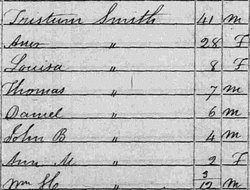 Tristum Smith 41 M
Ann " 28 F
Louisa " 8 F
Thomas " 7 M
Daniel " 6 M
John B " 4 M
Ann M. " 2 F
Wm H. " 3/12 M